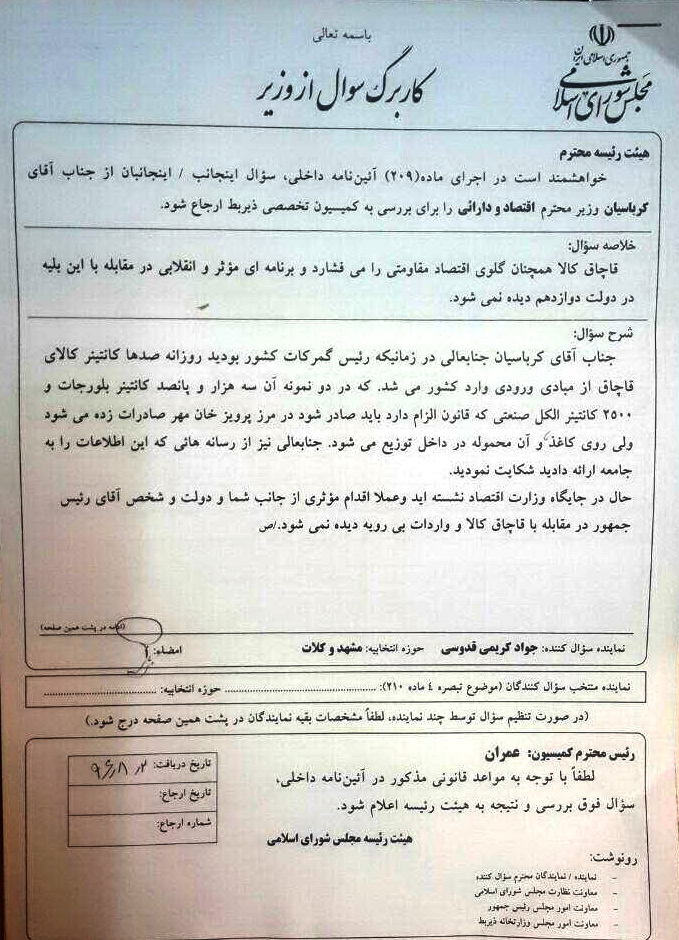 باسمه تعالی
جمهوری اسلامی ایران
مجلس شورای اسلامی
کاربرگ سوال از وزیر
هیئت رئیسه محترم
خواهشمند است در اجرای ماده(۲۰۹) آئین‌نامه داخلی، سؤال اینجانب / اینجانبان از جناب آقای
کرباسیان وزیر محترم اقتصاد و دارائی را برای بررسی به کمیسیون تخصصی ذیربط ارجاع شود.
خلاصه سؤال:
قاچاق کالا همچنان گلوی اقتصاد مقاومتی را می فشارد و برنامه ای مؤثر و انقلابی در مقابله با این بلیه
در دولت دوازدهم دیده نمی شود.
شرح سؤال:
جناب آقای کرباسیان جنابعالی در زمانیکه رئیس گمرکات کشور بودید روزانه صدها کانتینر کالای
قاچاق از مبادی ورودی وارد کشور می شد. که در دو نمونه آن سه هزار و پانصد کانتینر بلورجات و
۲۵۰۰ کانتینر الکل صنعتی که قانون الزام دارد باید صادر شود در مرز پرویز خان مهر صادرات زده می شود
ولی روی کاغذ و آن محموله در داخل توزیع می شود. جنابعالی نیز از رسانه هائی که این اطلاعات را به
جامعه ارائه دادید شکایت نمودید.
حال در جایگاه وزارت اقتصاد نشسته اید وعملا اقدام مؤثری از جانب شما و دولت و شخص آقای رئیس
جمهور در مقابله با قاچاق کالا و واردات بی رویه دیده نمی شود./ص
(ادامه در پشت همین صفحه)
نماینده سؤال کننده: جواد کریمی قدوسی حوزه انتخابیه: مشهد و کلات امضاء:
نماینده منتخب سؤال کنندگان (موضوع تبصره ٤ ماده ۲۱۰): ........................................ حوزه انتخابیه: ........................................
(در صورت تنظیم سؤال توسط چند نماینده، لطفاً مشخصات بقیه نمایندگان در پشت همین صفحه درج شود.)
رئیس محترم کمیسیون: عمران
لطفاً با توجه به مواعد قانونی مذکور در آئین‌نامه داخلی،
سؤال فوق بررسی و نتیجه به هیئت رئیسه اعلام شود.
هیئت رئیسه مجلس شورای اسلامی
تاریخ دریافت: ۹۶/۸/۲
تاریخ ارجاع:
شماره ارجاع:
رونوشت:
- نماینده / نمایندگان محترم سؤال کننده
- معاونت نظارت مجلس شورای اسلامی
- معاونت امور مجلس رئیس جمهور
- معاونت امور مجلس وزارتخانه ذیربط